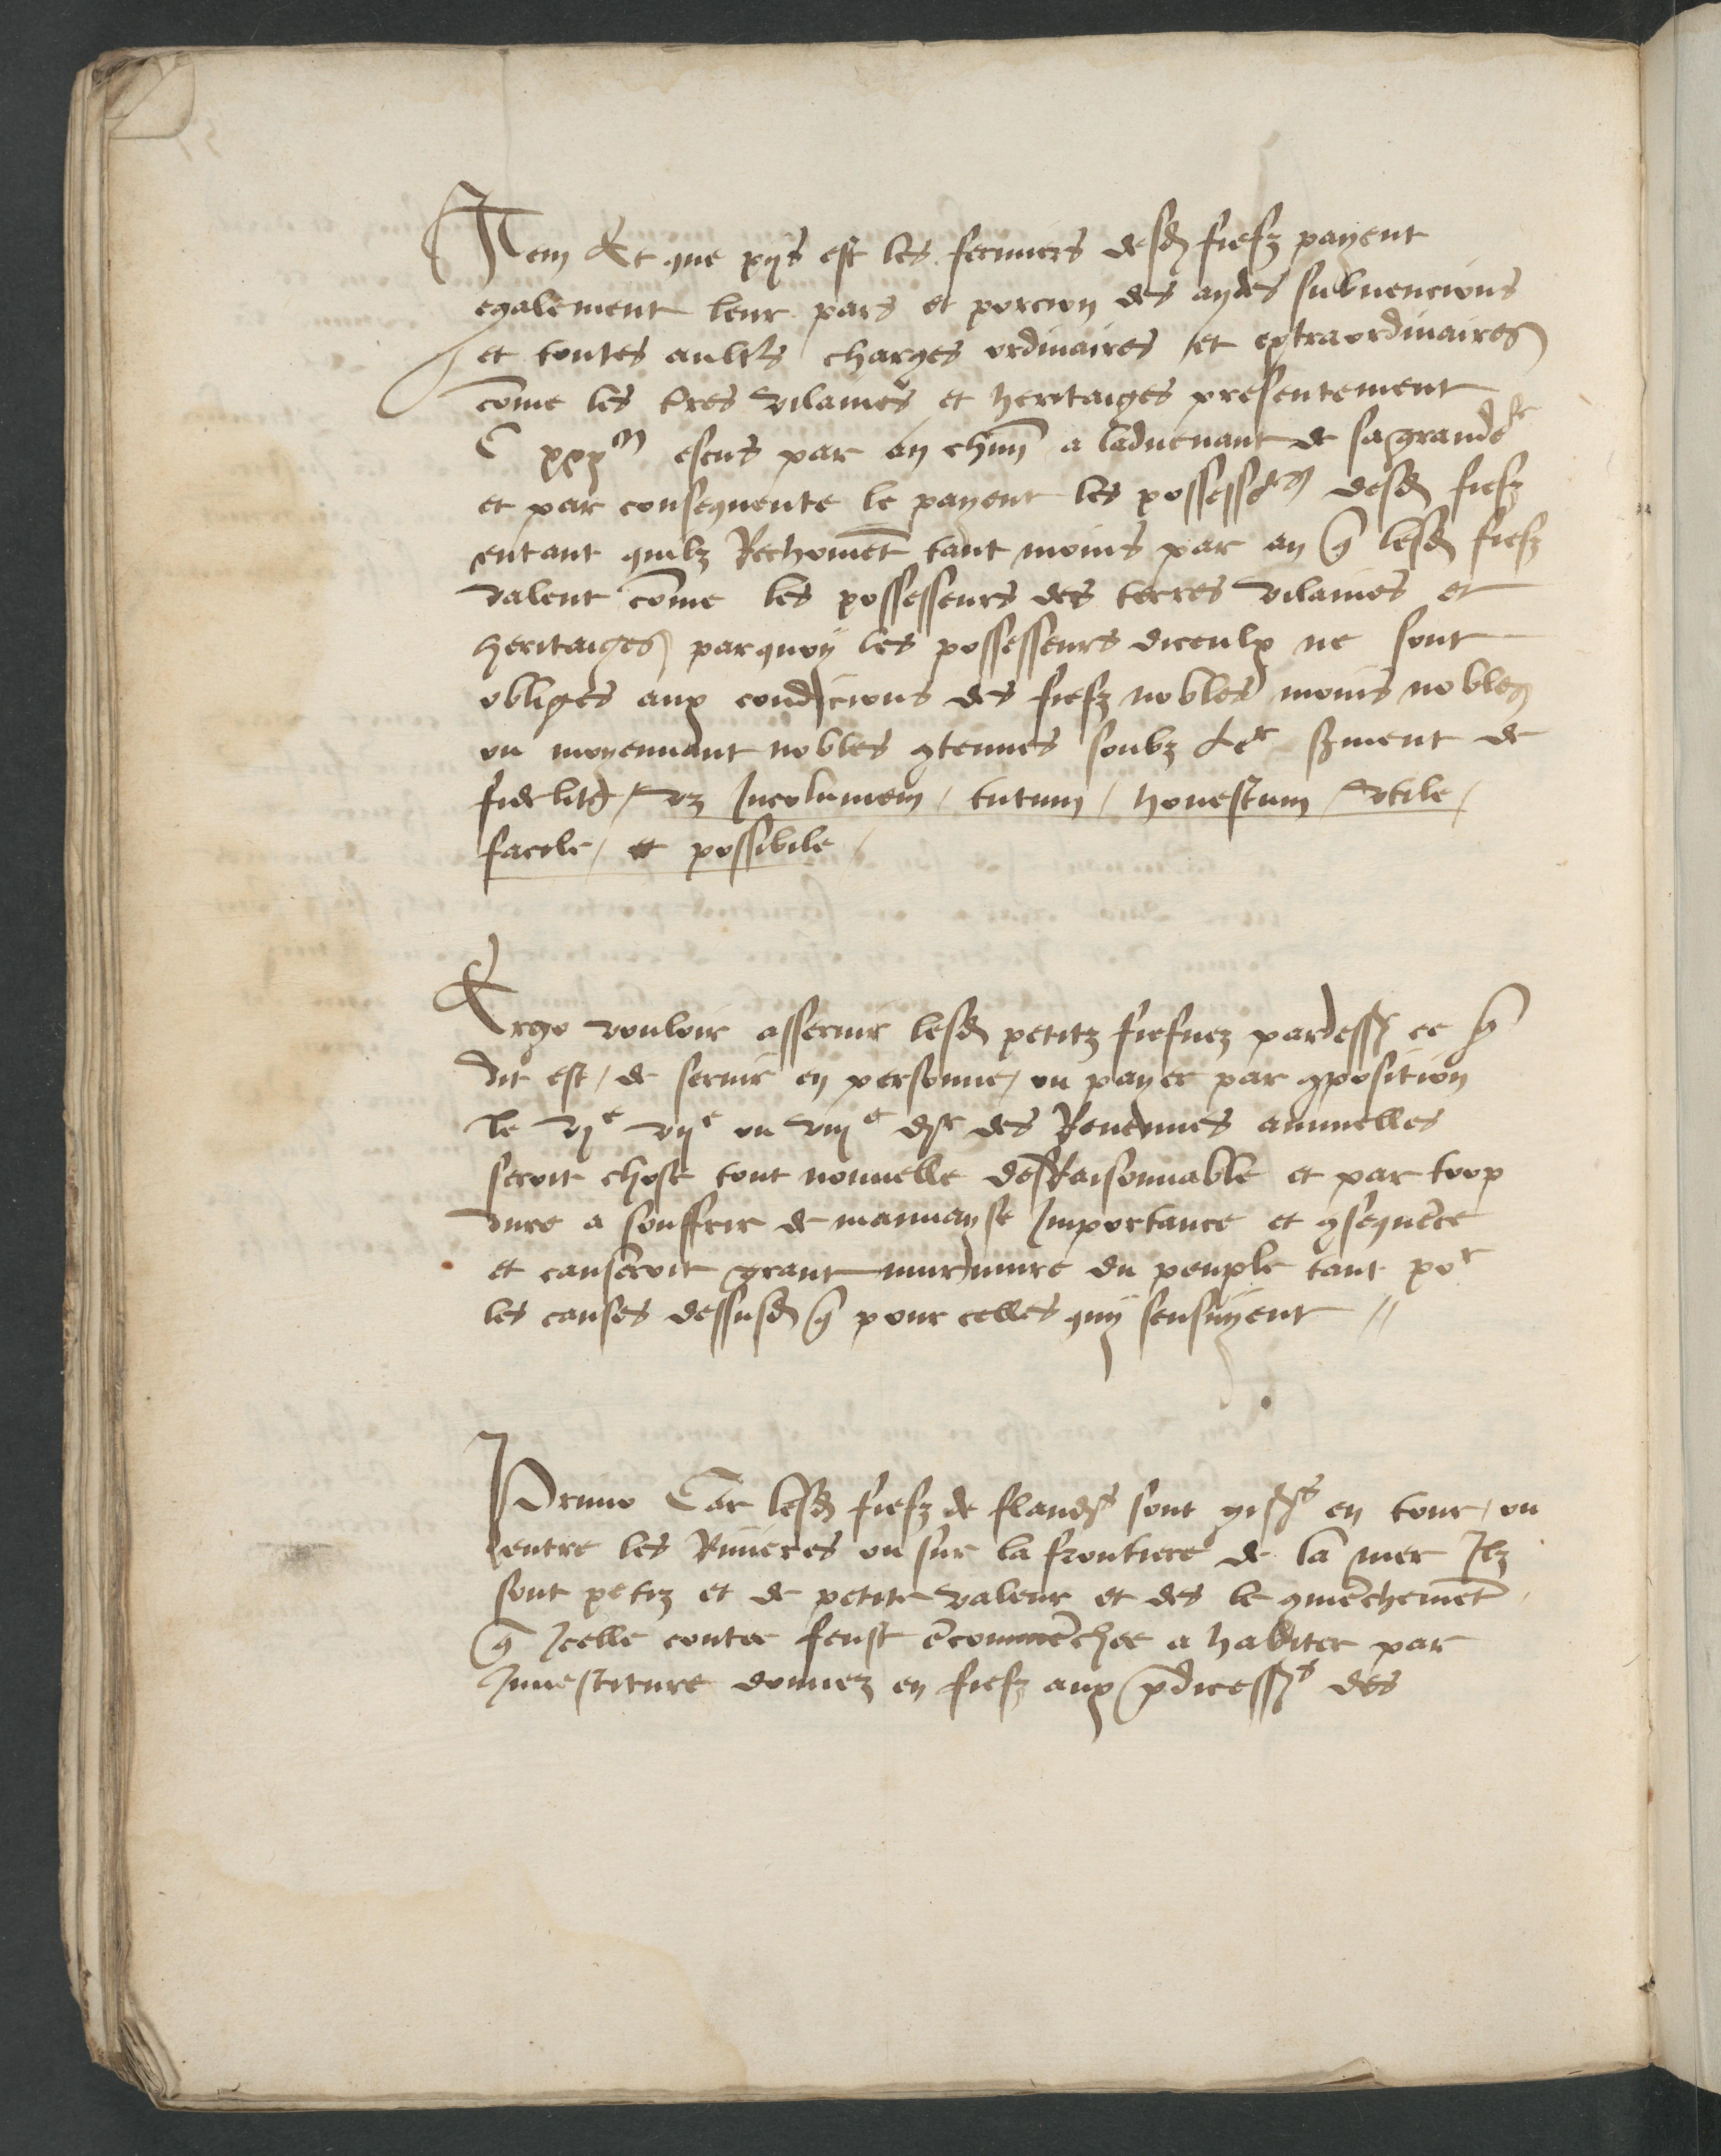 Item Et que pijs est les fermiers desd fiefz payent
egalement leur pars et porcion des aydes subuencions
et toutes aultrs charges ordinaires et extraordinaires
come les tres vilaines et heritaiges presentement
C xxx m escus par an chun a laduenant de sa grandr
et par consequente le payent les possessrs desd fiefz
entant quilz Rechoiuet tant moins par an q lesd fiefz
valent come les possesseurs des terres vilaines et
heritaiges parquoy les possesseurs diceulx ne sont
obliges aux condicions des fiefz nobles moins nobles
ou moyennant nobles gtenues soubz ler sment de
fidelite / vz Incolumem / tutum / honestum / vtile /
facile / et possibile /
Ergo vouloir asseruir lesd petitz fiefuez pardess ce q
dit est / de seruir en personne / ou payer par gposition
le vje vije ou viije dr des Reuenues annuelles
seroit chose tout nouuelle desRaisonnable et par trop
dure a souffrir de mauuayse Importance et gsequece
et causeroit grant murmure du peuple tant por
les causes dessusd q pour celles quy sensuyent //
Primo Car lesd fiefz de flandrs sont gisss en tour / ou
entre les Riuieres ou sur la frontiere de la mer Ilz
sont petiz et de petite valeur et des le gmechemet
q Icelle contee feust ecommechee a habiter par
Inuestiture donnez en fiefz aux pdicesss des